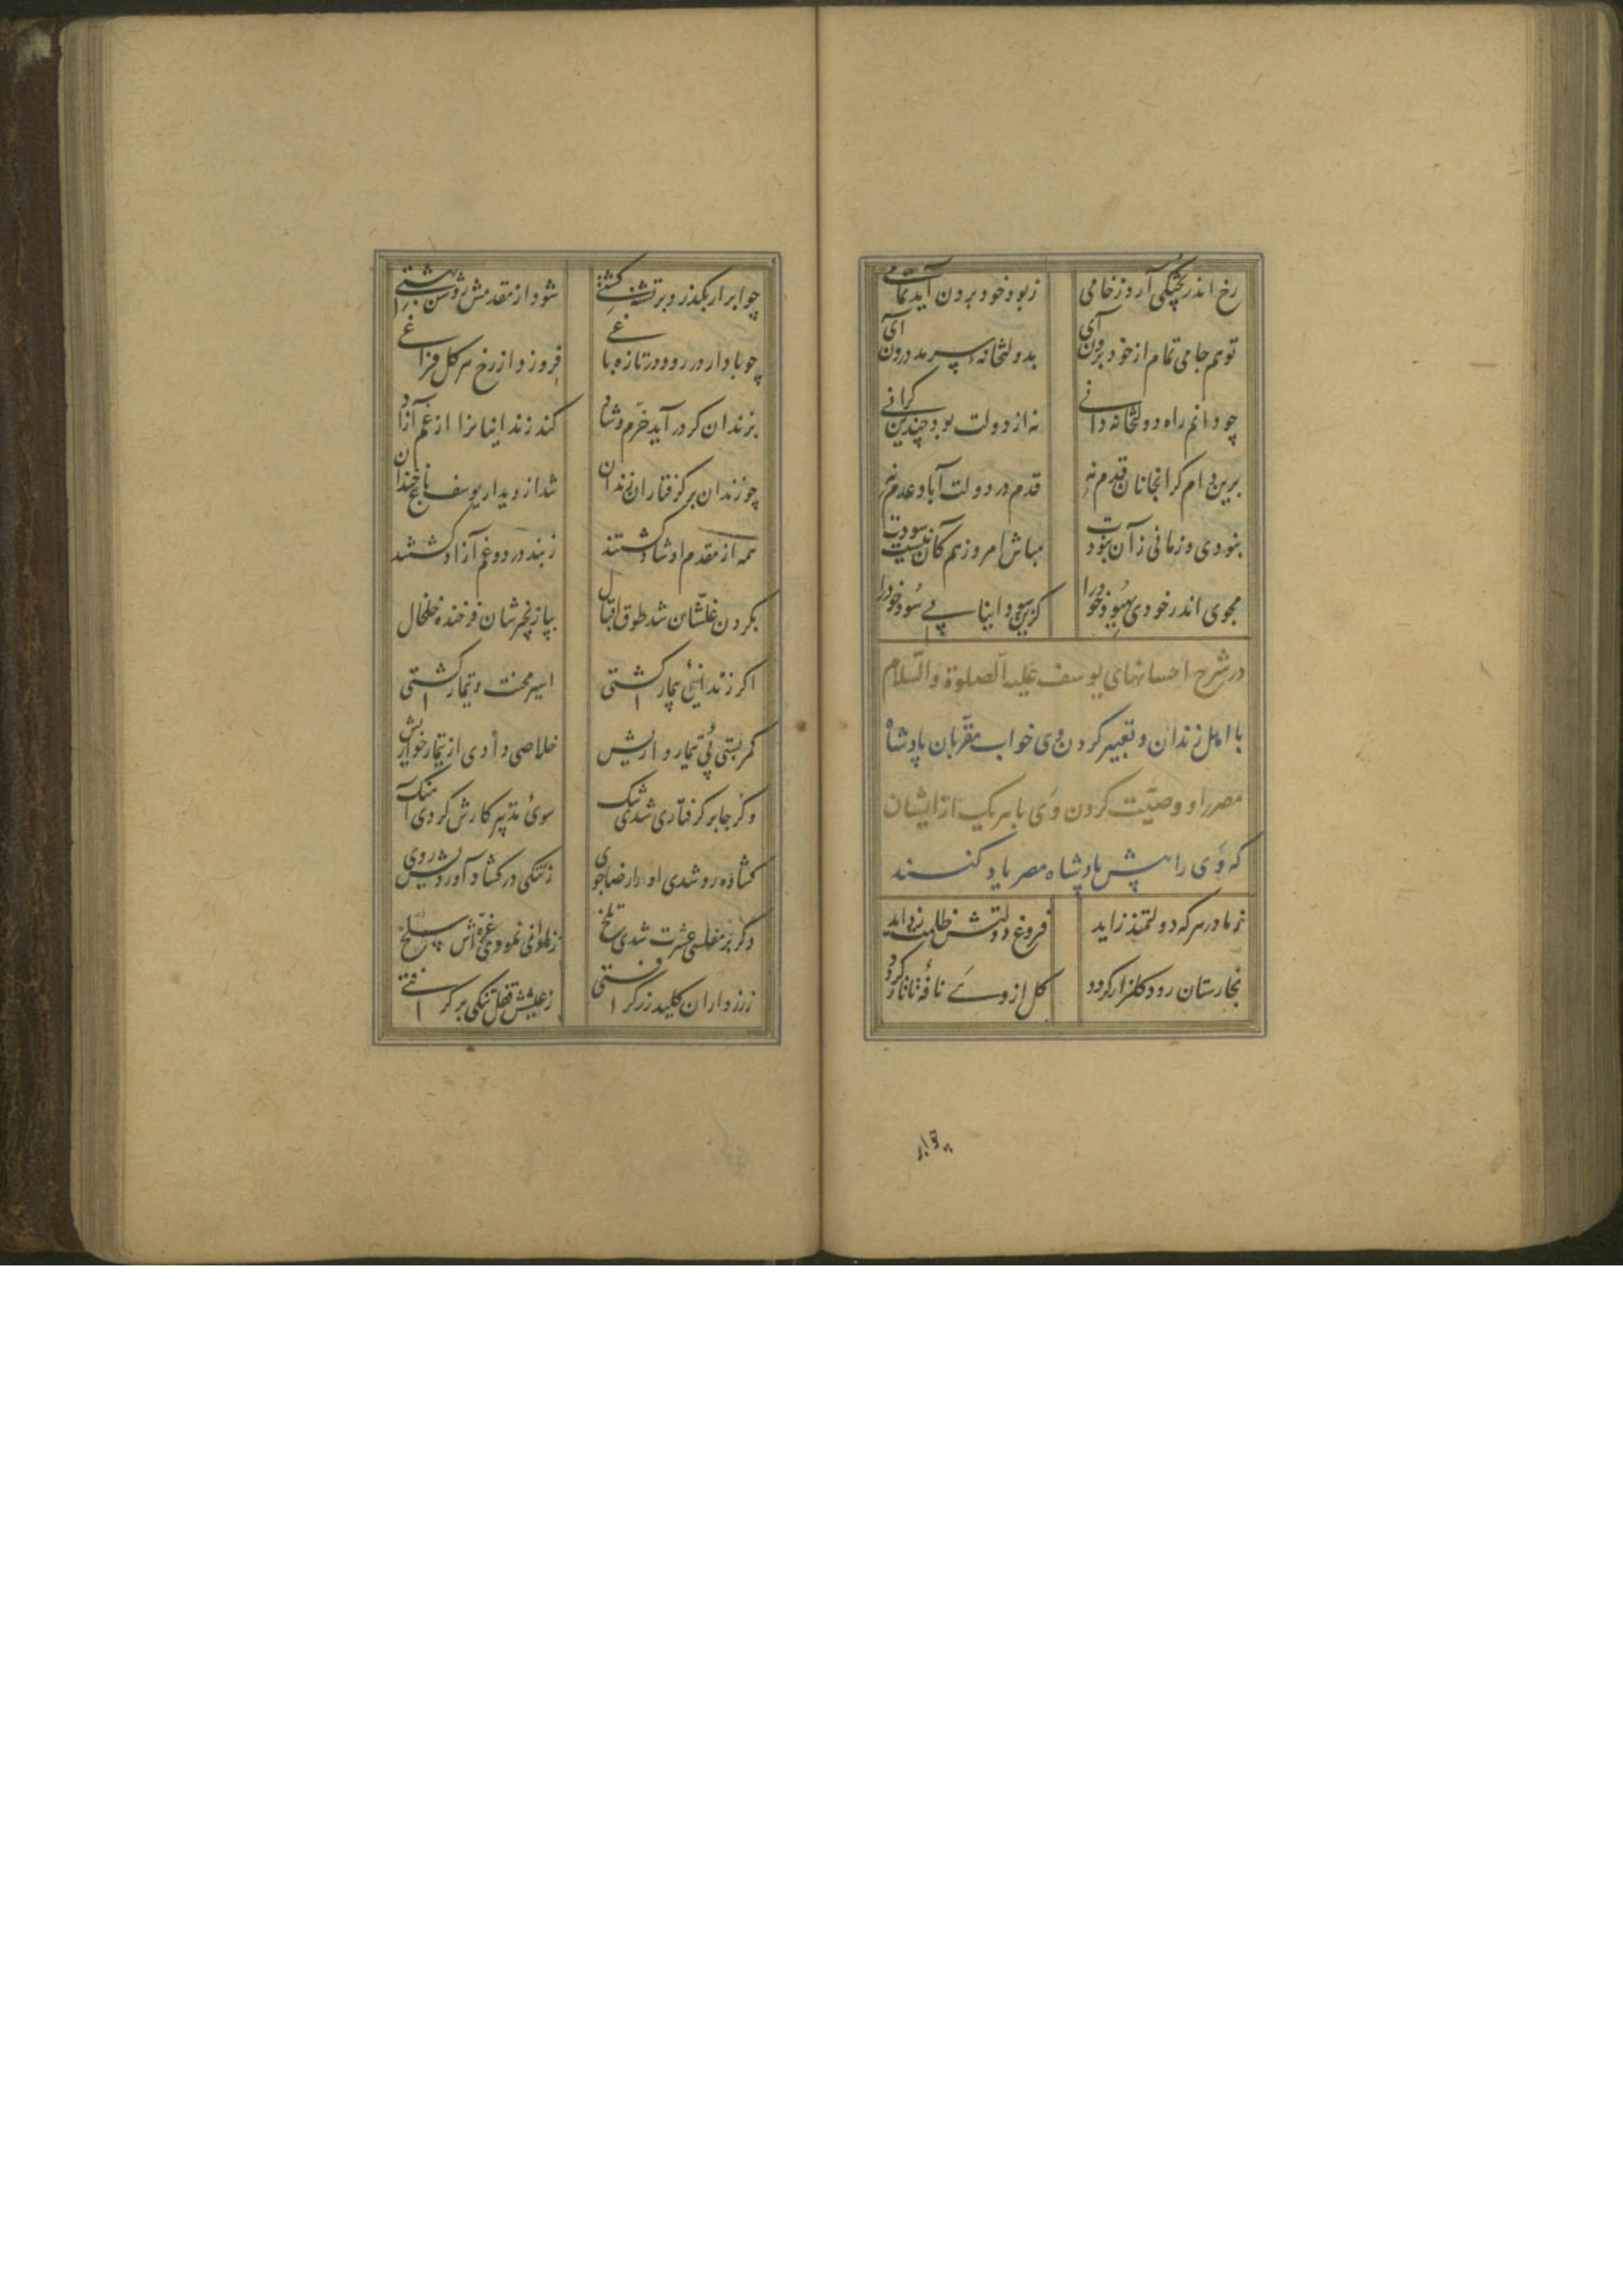 رخ اندر پختگی آرد ز خامی
ز بود خود برون آید تمامی
تو هم جامی تمام از خود برون آی
بدولتخانهٔ سرمد درون آی
چو دانم راه دولتخانه دانی
نه از دولت بود چندین گرانی
برین دام گرانجانان قدم نه
قدم در دولت آباد عدم نه
نبودی و زمانی زآن نبودت
مباش امروز هم کآن نیست سودت
مجوی اندر خودی بهبود خود را
کزین سودا نیابی سود خود را
در شرح احسانهای یوسف علیه الصلوة والسلام
با اهل زندان و تعبیر کردن وی خواب مقربان پادشاه
مصر را و وصیت کردن وی با هر یک از ایشان
که وی را پیش پادشاه مصر یاد کنند
ز مادر هر که دولتمند زاید
فروغ دولتش ظلمت زداید
بخارستان رود گلزار گردد
گل از وی نافهٔ تاتار گردد
چو ابر ار بگذرد بر تشنه کشتی
شود از مقدمش روشن بهشتی
چو باد ار در رود در تازه باغی
فروزد از رخ هر گل چراغی
بزندان گر درآید خرم و شاد
کند زندانیانرا از غم آزاد
چو زندان بر گرفتاران زندان
شد از دیدار یوسف باغ خندان
همه از مقدم او شاد گشتند
ز بند درد و غم آزاد گشتند
بگردن غلشان شد طوق اقبال
بپا زنجیرشان فرخنده خلخال
اگر زندانیی بیمار گشتی
اسیر محنت و تیمار گشتی
کمر بستی پی تیمارداریش
خلاصی دادی از تیمار خواریش
وگر جا بر گرفتاری شدی تنگ
سوی تدبیر کارش کردی آهنگ
گشاده رو شدی او را رضاجوی
ز تنگی در گشاد آوردیش روی
وگر بر مفلسی عشرت شدی تلخ
ز ناوانی نمودی غره‌اش سلخ
ز زرداران کلید زر گرفتی
ز عیشش قفل تنگی بر گرفتی